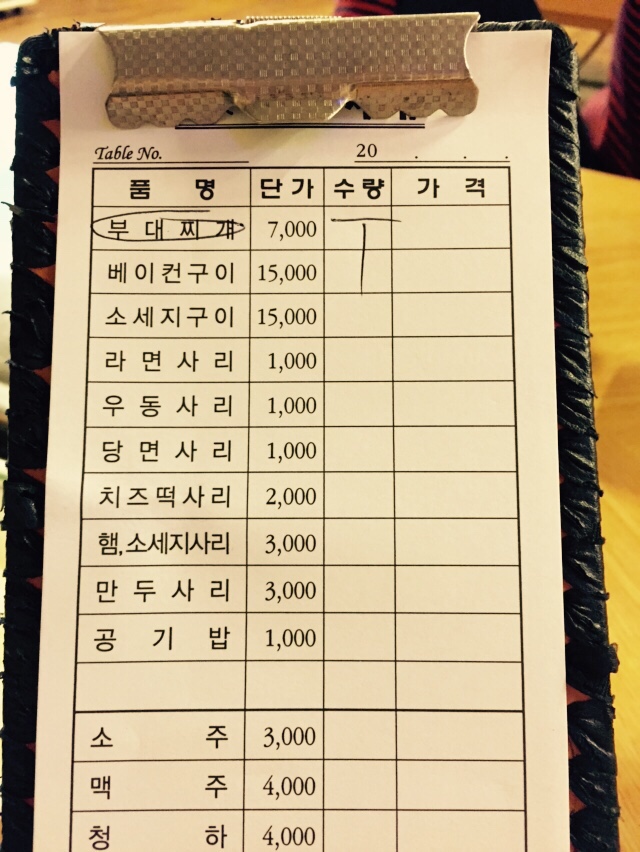 Table No. 20 . . .
품 명 단가 수량 가 격
부대찌개 7,000
베이컨구이 15,000
소세지구이 15,000
라면사리 1,000
우동사리 1,000
당면사리 1,000
치즈떡사리 2,000
햄,소세지사리 3,000
만두사리 3,000
공기밥 1,000
소주 3,000
맥주 4,000
청하 4,000